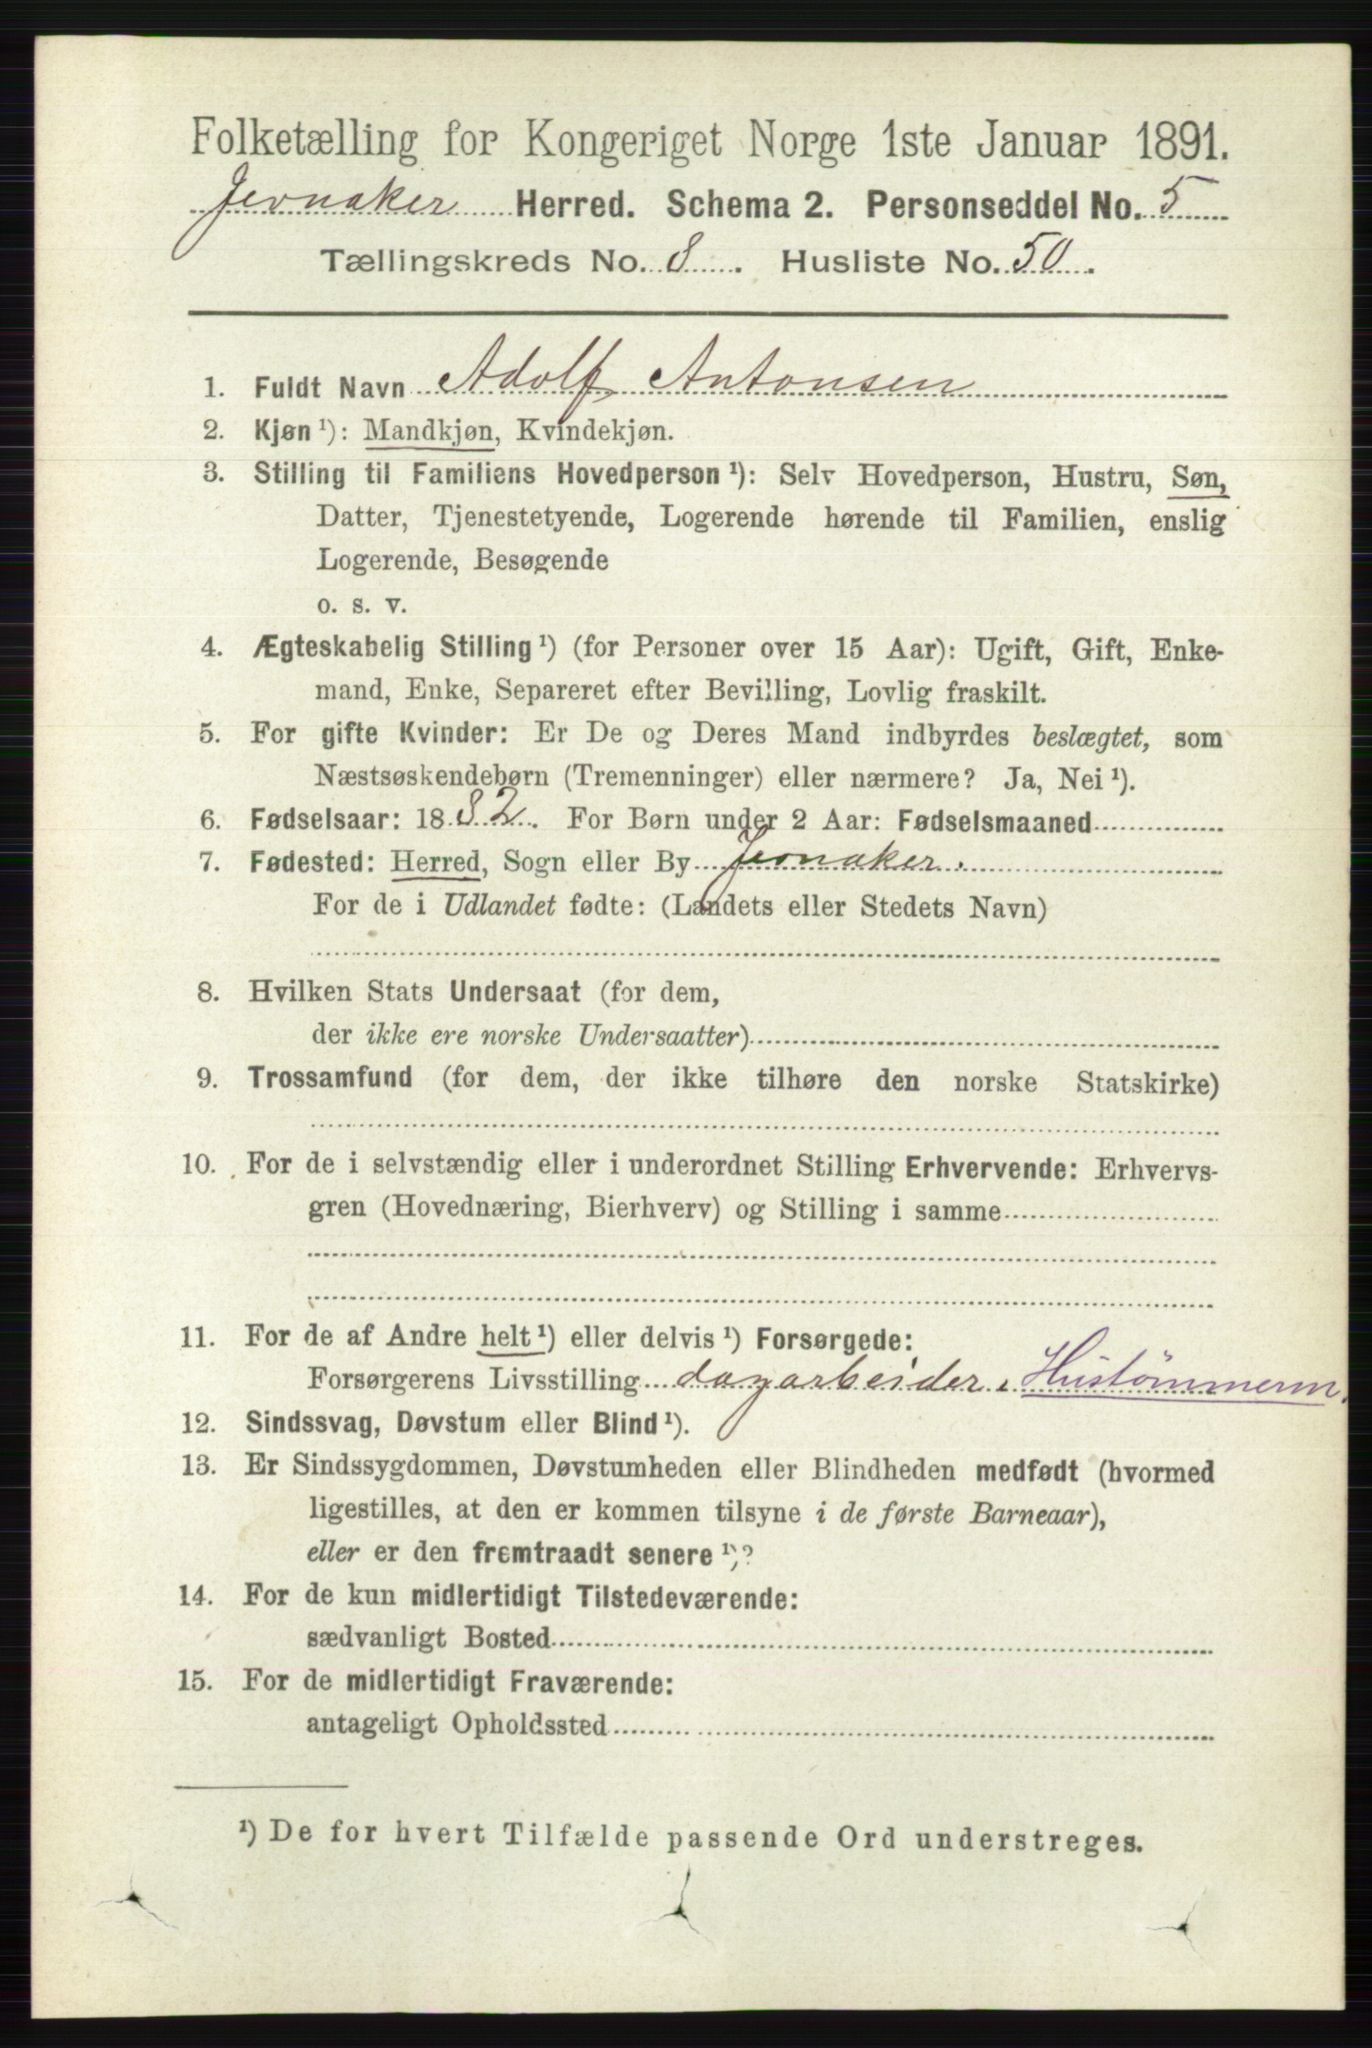 Folketælling for Kongeriget Norge 1ste Januar 1891.
Jevnaker Herred. Schema 2. Personseddel No. 5
Tællingskreds No. 8. Husliste No. 50.
1. Fuldt Navn Adolf Antonsen
2. Kjøn ¹): Mandkjøn, Kvindekjøn.
3. Stilling til Familiens Hovedperson ¹): Selv Hovedperson, Hustru, Søn,
Datter, Tjenestetyende, Logerende hørende til Familien, enslig
Logerende, Besøgende
o. s. v.
4. Ægteskabelig Stilling ¹) (for Personer over 15 Aar): Ugift, Gift, Enke-
mand, Enke, Separeret efter Bevilling, Lovlig fraskilt.
5. For gifte Kvinder: Er De og Deres Mand indbyrdes beslægtet, som
Næstsøskendebørn (Tremenninger) eller nærmere? Ja, Nei ¹).
6. Fødselsaar: 1882. For Børn under 2 Aar: Fødselsmaaned
7. Fødested: Herred, Sogn eller By Jevnaker.
For de i Udlandet fødte: (Landets eller Stedets Navn)
8. Hvilken Stats Undersaat (for dem,
der ikke ere norske Undersaatter)
9. Trossamfund (for dem, der ikke tilhøre den norske Statskirke)
10. For de i selvstændig eller i underordnet Stilling Erhvervende: Erhvervs-
gren (Hovednæring, Bierhverv) og Stilling i samme
11. For de af Andre helt ¹) eller delvis ¹) Forsørgede:
Forsørgerens Livsstilling dagarbeider. Hustömmerm.
12. Sindssvag, Døvstum eller Blind ¹).
13. Er Sindssygdommen, Døvstumheden eller Blindheden medfødt (hvormed
ligestilles, at den er kommen tilsyne i de første Barneaar),
eller er den fremtraadt senere ¹)?
14. For de kun midlertidigt Tilstedeværende:
sædvanligt Bosted
15. For de midlertidigt Fraværende:
antageligt Opholdssted
¹) De for hvert Tilfælde passende Ord understreges.